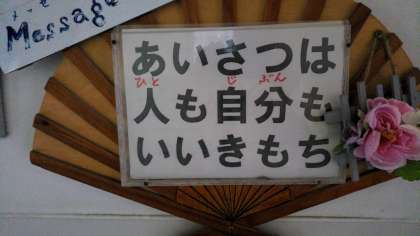 Message
あいさつは
ひと じ ぶん
人も自分も
いいきもち